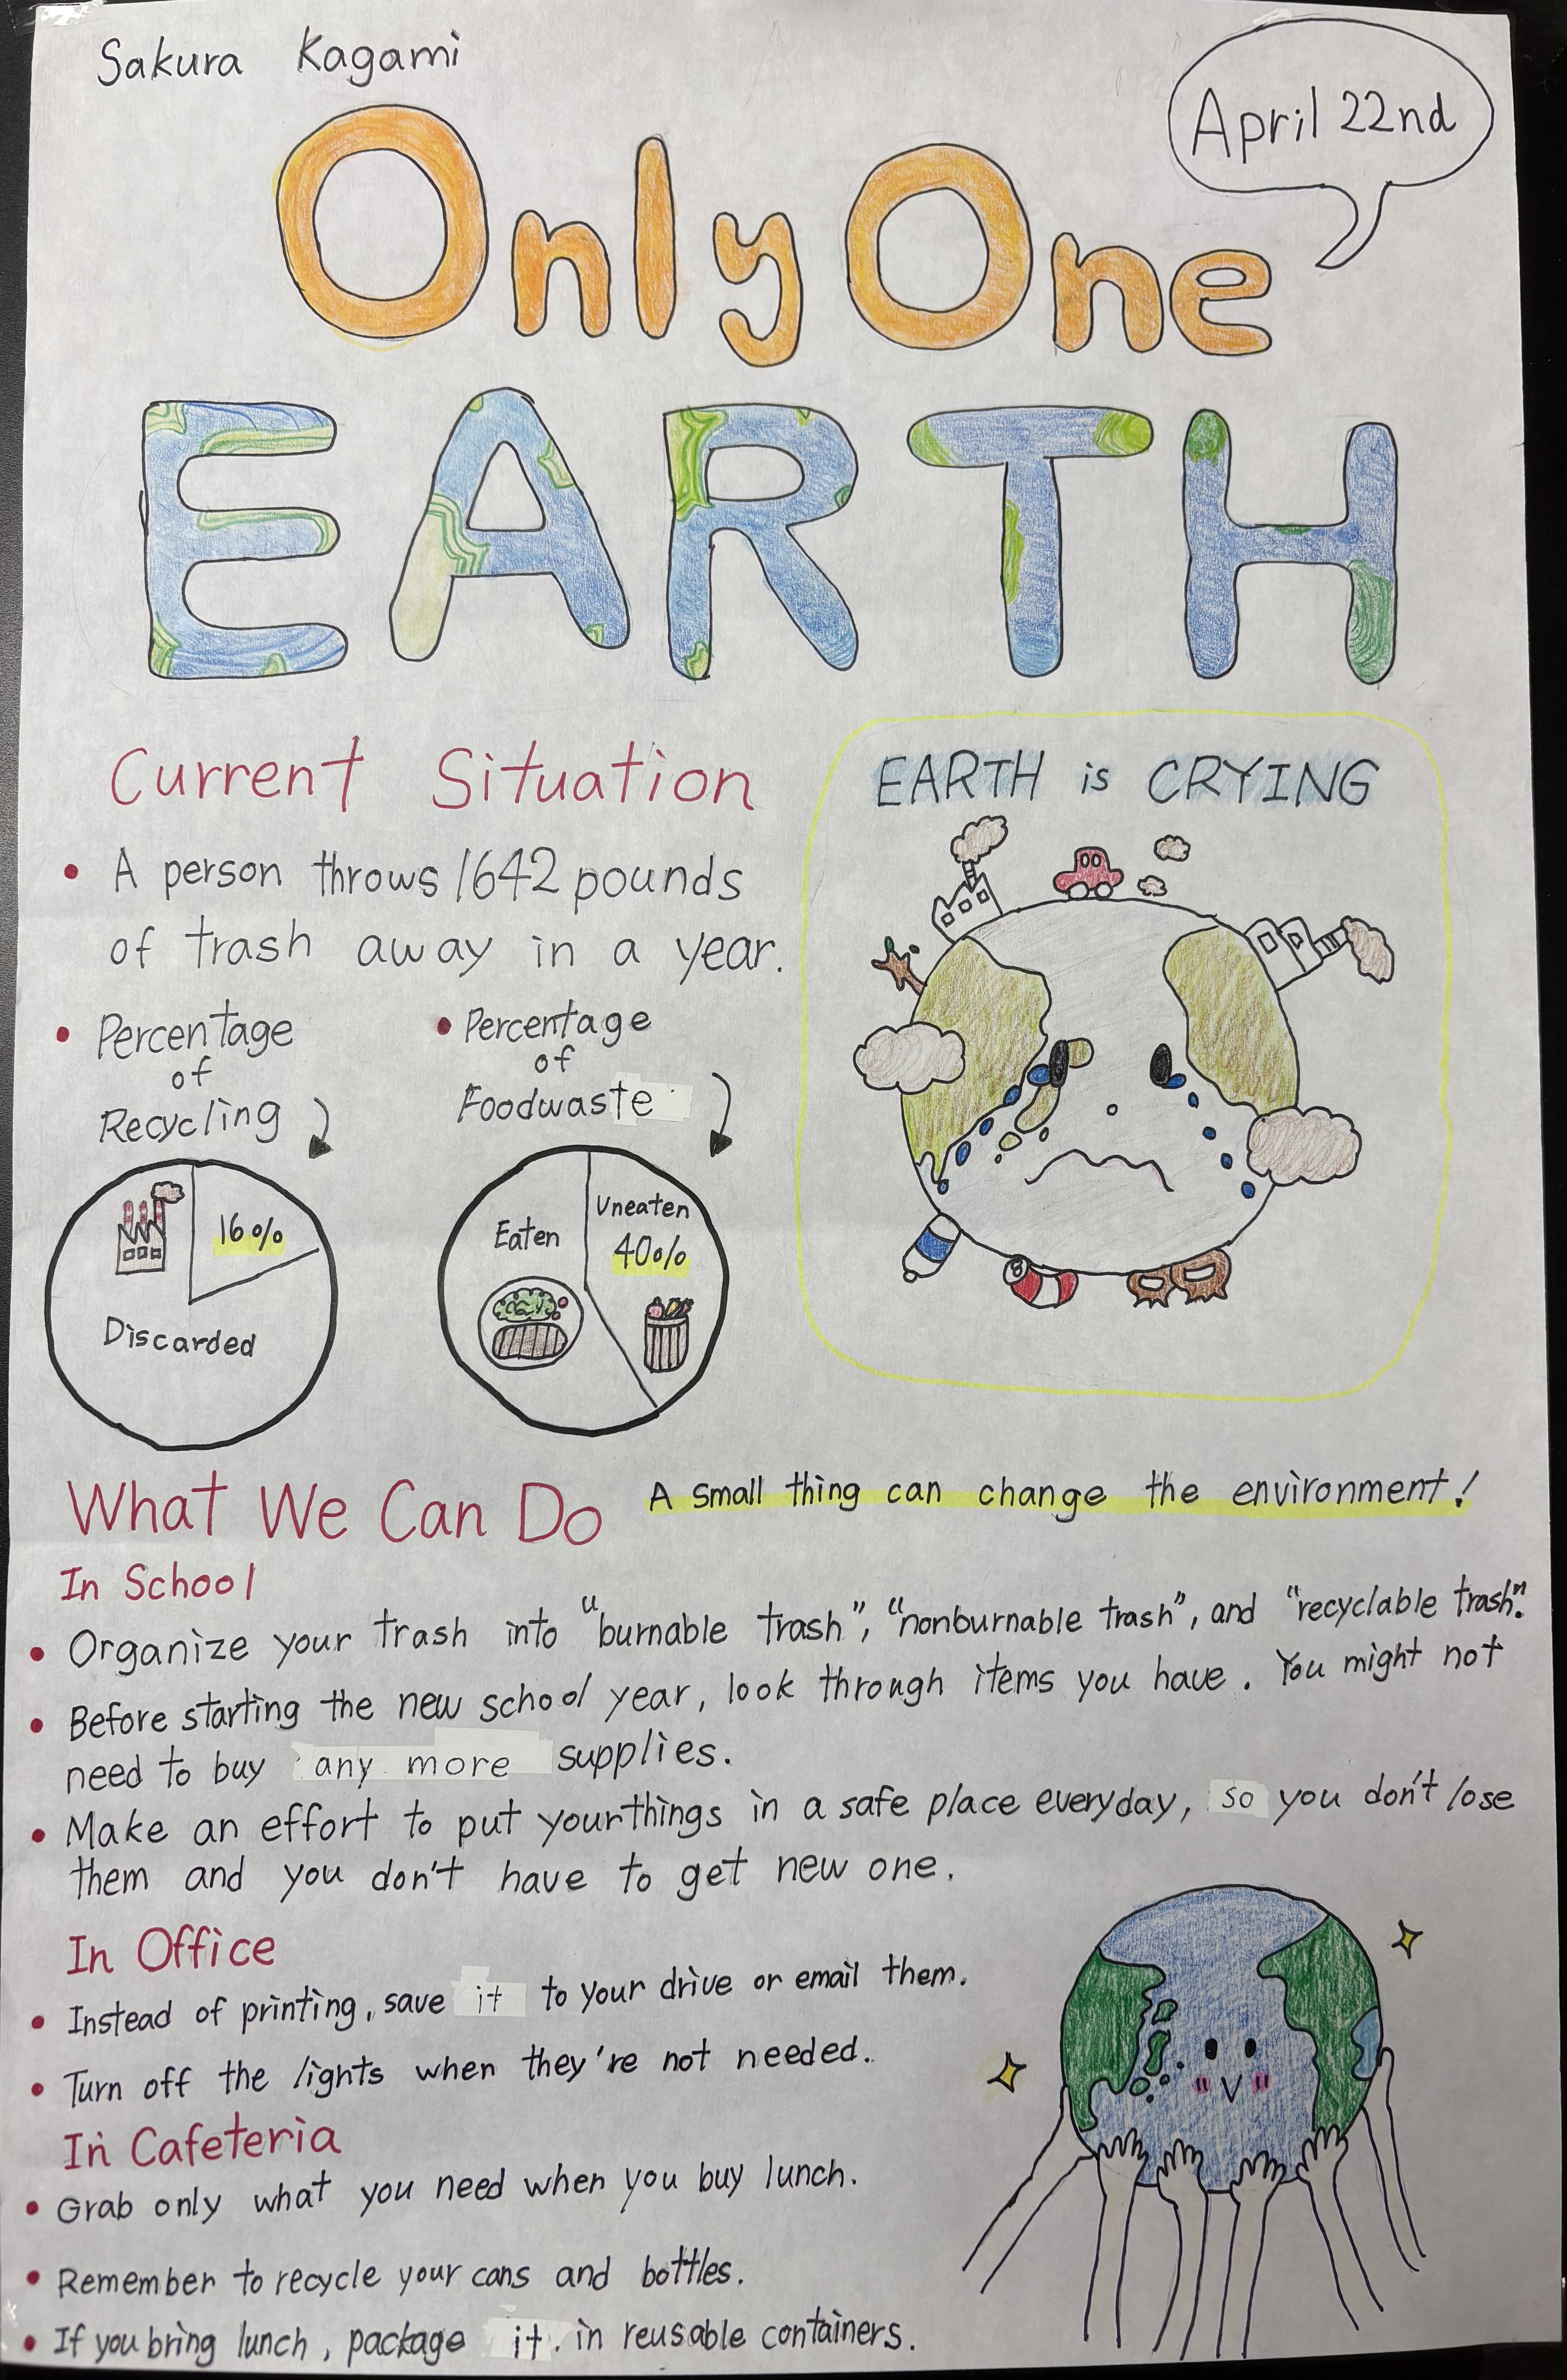 Sakura Kagami
April 22nd
Only One
EARTH
Current Situation
• A person throws 1642 pounds
of trash away in a year.
• Percentage
of
Recycling
16%
Discarded
• Percentage
of
Foodwaste
Eaten
Uneaten
40%
EARTH is CRYING
What We Can Do
A small thing can change the environment!
In School
• Organize your trash into "burnable trash", "nonburnable trash", and "recyclable trash".
• Before starting the new school year, look through items you have. You might not
need to buy any more supplies.
• Make an effort to put your things in a safe place everyday, so you don't lose
them and you don't have to get new one.
In Office
• Instead of printing, save it to your drive or email them.
• Turn off the lights when they're not needed.
In Cafeteria
• Grab only what you need when you buy lunch.
• Remember to recycle your cans and bottles.
• If you bring lunch, package it in reusable containers.